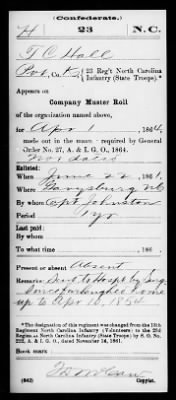 (Confederate.)
H 23 N.C.
T C Hall
Pvt, Co. K, 23 Reg't North Carolina
Infantry (State Troops).*
Appears on
Company Muster Roll
of the organization named above,
for Apr 1, 1864,
made out in the manner required by General
Order No. 27, A. & I. G. O., 1864.
No date
Enlisted:
When June 22, 1861.
Where Garysburg NC
By whom Capt Johnston
Period 1 yr
Last paid:
By whom
To what time , 186 .
Present or absent Absent
Remarks: Sent to Hospt by Surg
up to Apr 10, 1864
*The designation of this regiment was changed from the 13th
Regiment North Carolina Infantry (Volunteers) to the 23d
Regiment North Carolina Infantry (State Troops) by S. O. No.
222, A. & I. G. O., dated November 14, 1861.
Book mark:
(642) Copyist.